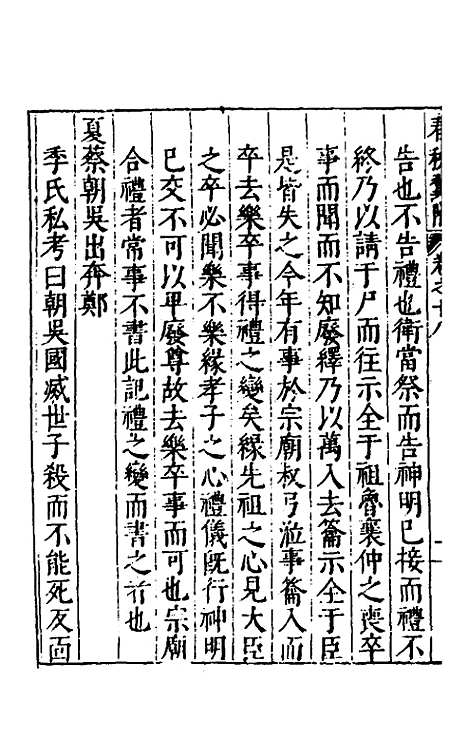 告也不告禮也衛當祭而告神明已接而禮不
終乃以請于尸而往示全于祖魯襄仲之喪卒
事而聞而不知廢繹乃以萬入去籥示全于臣
是皆失之今年有事於宗廟叔弓涖事籥入而
卒去樂卒事得禮之變矣緣先祖之心見大臣
之卒必聞樂不樂緣孝子之心禮儀既行神明
已交不可以卑廢尊故去樂卒事而可也宗廟
合禮者常事不書此記禮之變而書之者也
夏蔡朝吳出奔鄭
季氏私考曰朝吳國滅世子殺而不能死反面